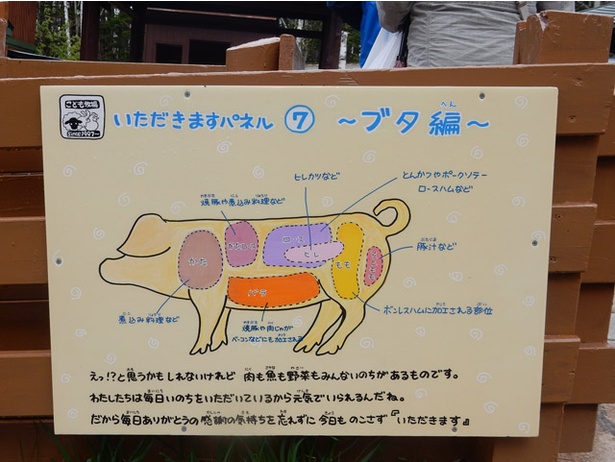 こども牧場
since1997
いただきますパネル ⑦ ～ブタ編～
へん
ヒレカツなど
とんかつやポークソテー
ロースハムなど
焼豚や煮込み料理など
豚汁など
かた
ロース
ヒレ
もも
バラ
煮込み料理など
焼豚や肉じゃが
ベーコンなどにも加工される
ボンレスハムに加工される部位
えっ!?と思うかもしれないけれど 肉も魚も野菜もみんないのちがあるものです。
わたしたちは毎日いのちをいただいているから元気でいられるんだね。
だから毎日ありがとうの感謝の気持ちを忘れずに今日も のこさず『いただきます』